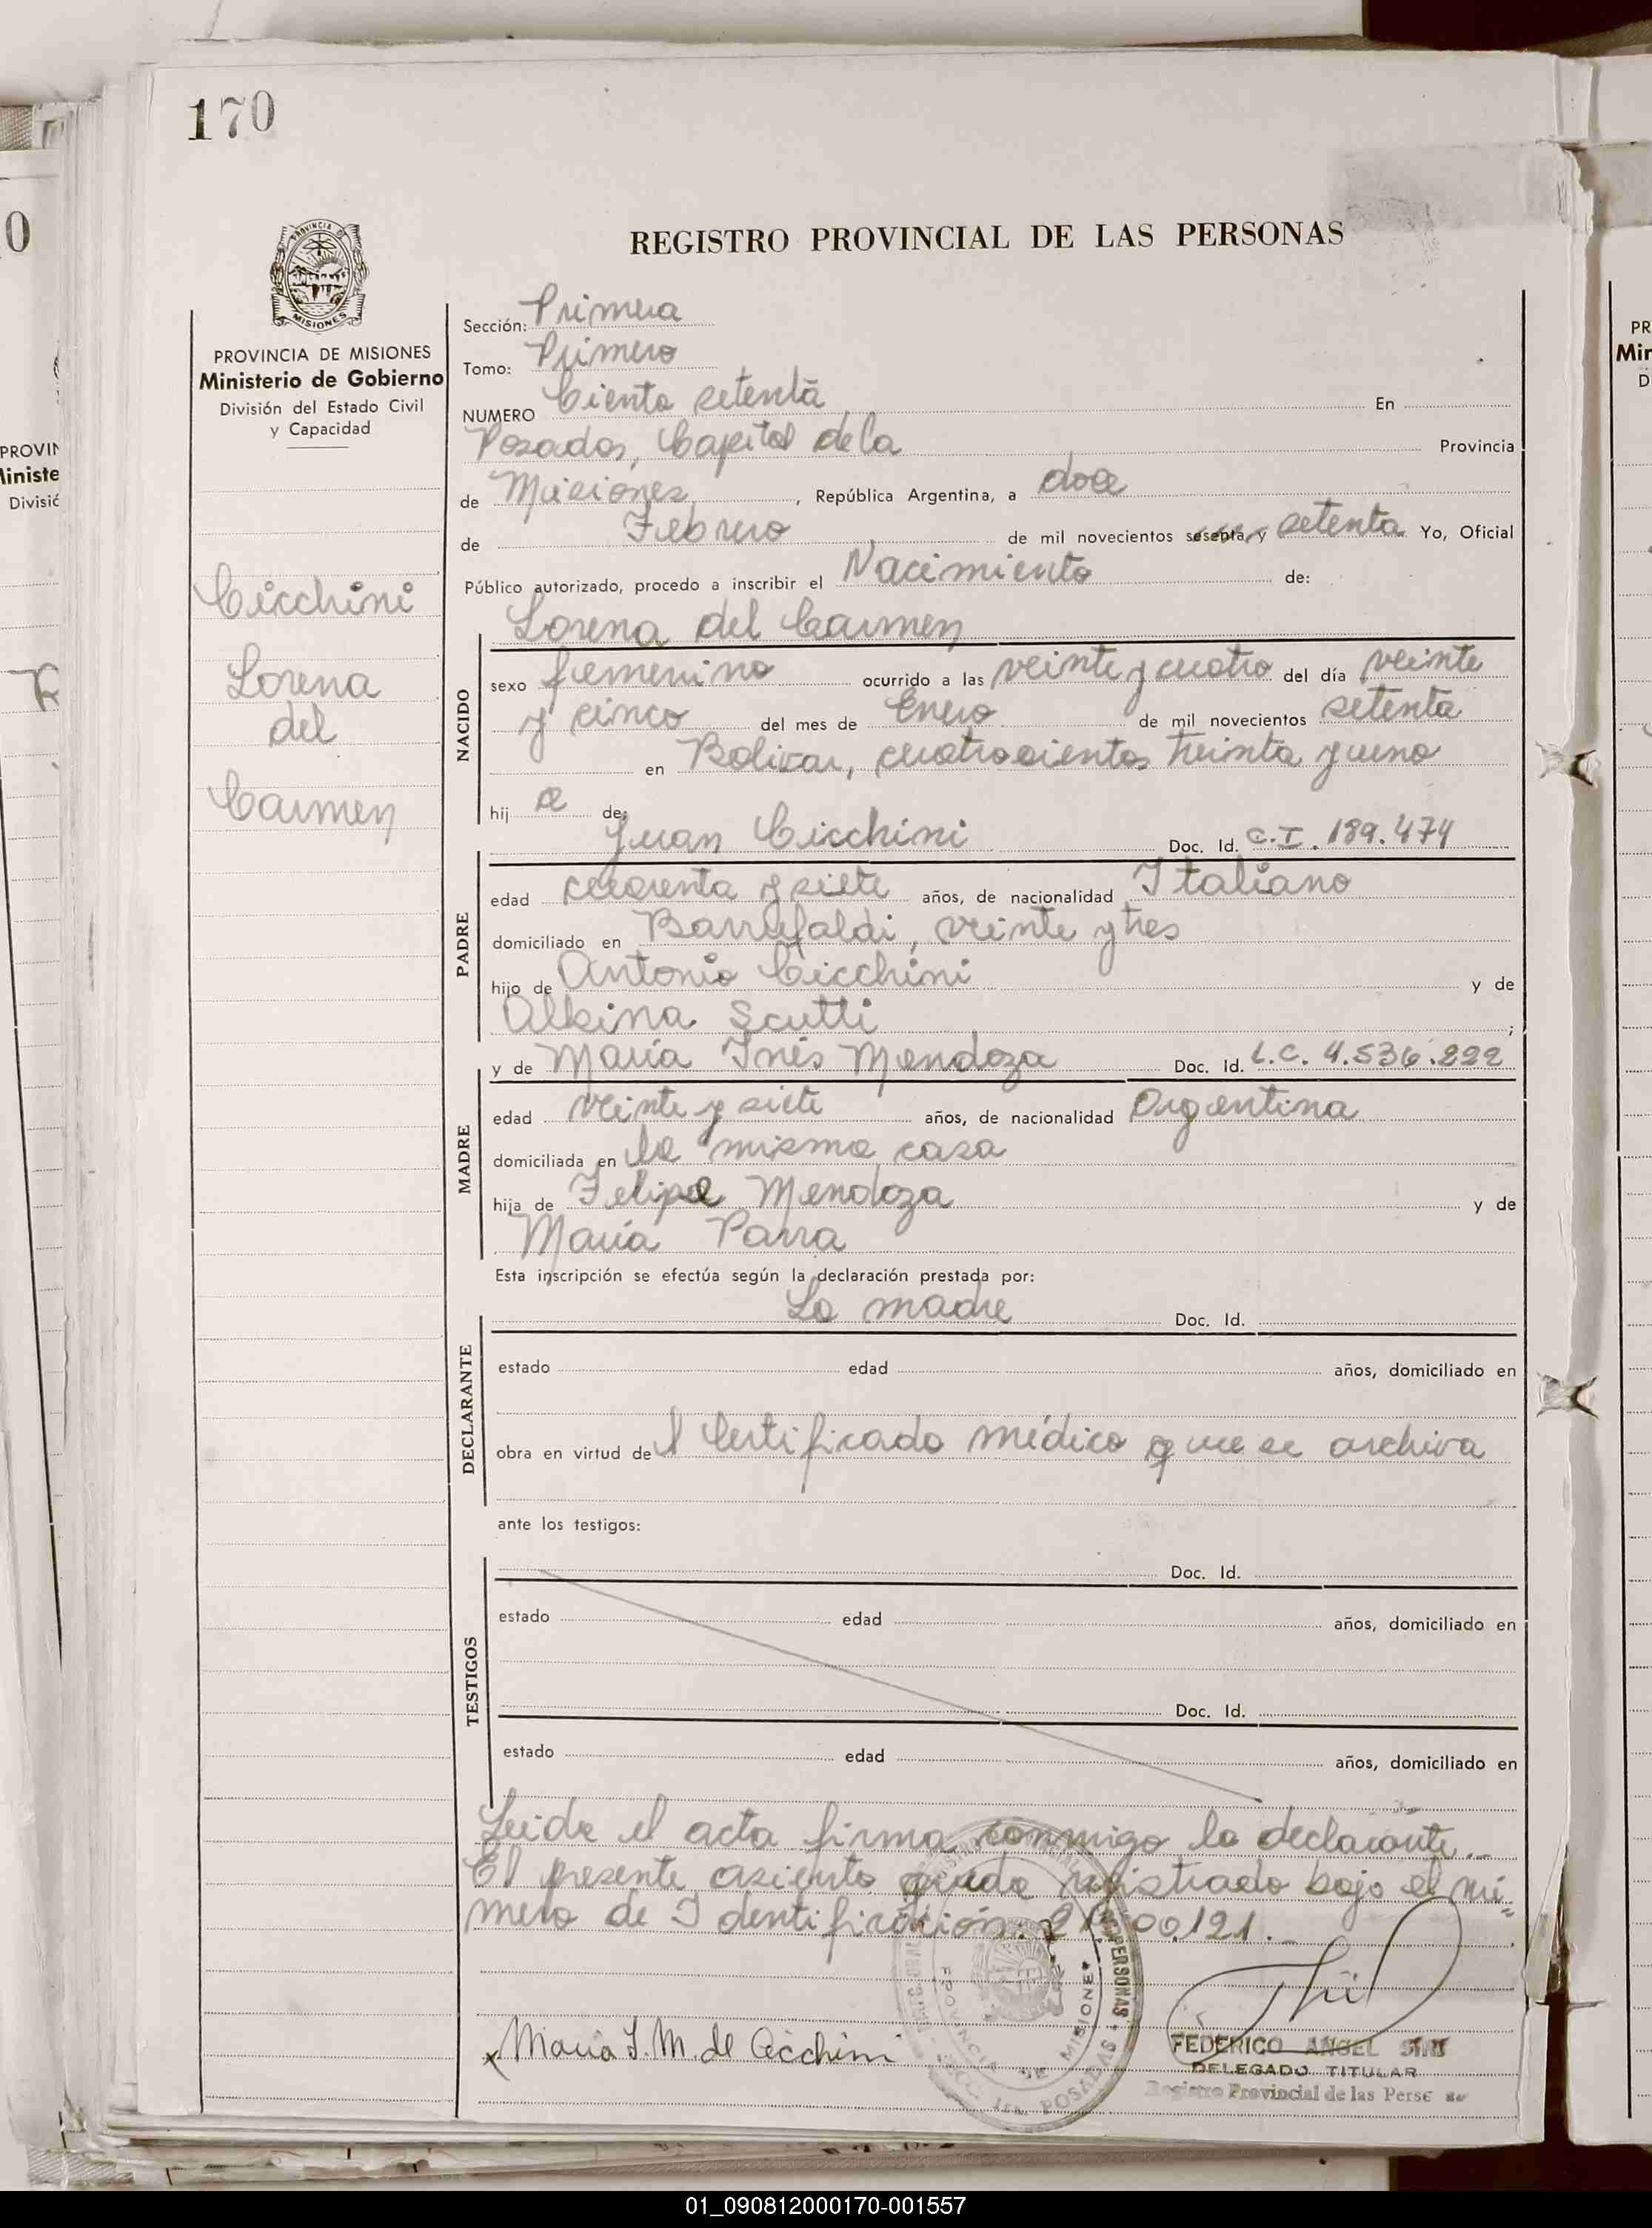 170
REGISTRO PROVINCIAL DE LAS PERSONAS
MISIONES
PROVINCIA DE MISIONES
Ministerio de Gobierno
División del Estado Civil
y Capacidad
Cicchini
Lorena
del
Carmen
Sección: Primera
Tomo: Primero
NUMERO Ciento setenta En
Posadas, Capital de la Provincia
de Misiones, República Argentina, a doce
de Febrero de mil novecientos sesenta y setenta Yo, Oficial
Público autorizado, procedo a inscribir el Nacimiento de:
Lorena del Carmen
NACIDO
sexo femenino ocurrido a las veinte y cuatro del día veinte
y cinco del mes de Enero de mil novecientos setenta
en Bolivar, cuatrocientos treinta y uno
hij a de:
Juan Cicchini Doc. Id. C.I. 189.474
PADRE
edad cuarenta y siete años, de nacionalidad Italiano
domiciliado en Barrufaldi, veinte y tres
hijo de Antonio Cicchini y de
Albina Scutti ;
y de María Inés Mendoza Doc. Id. L.C. 4.536.222
MADRE
edad veinte y siete años, de nacionalidad Argentina
domiciliada en la misma casa
hija de Felipe Mendoza y de
María Parra
Esta inscripción se efectúa según la declaración prestada por:
La madre Doc. Id.
DECLARANTE
estado edad años, domiciliado en
obra en virtud del Certificado médico que se archiva
ante los testigos:
Doc. Id.
TESTIGOS
estado edad años, domiciliado en
Doc. Id.
estado edad años, domiciliado en
Leida el acta firma conmigo la declarante.-
El presente asiento queda registrado bajo el nú-
mero de Identificación: 21.200.121.-
María I. M. de Cicchini
PROVINCIA DE MISIONES
PERSONAS
POSADAS
FEDERICO ANGEL
DELEGADO TITULAR
Registro Provincial de las Perso
01_090812000170-001557